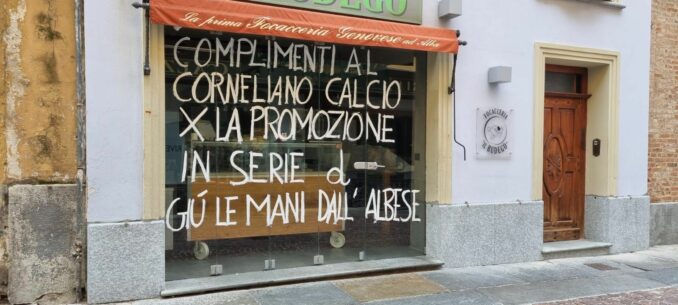 La prima Focacceria Genovese ad Alba
COMPLIMENTI AL
CORNELIANO CALCIO
X LA PROMOZIONE
IN SERIE d
GIÚ LE MANI DALL' ALBESE
FOCACCERIA
"IL BUDEGO"